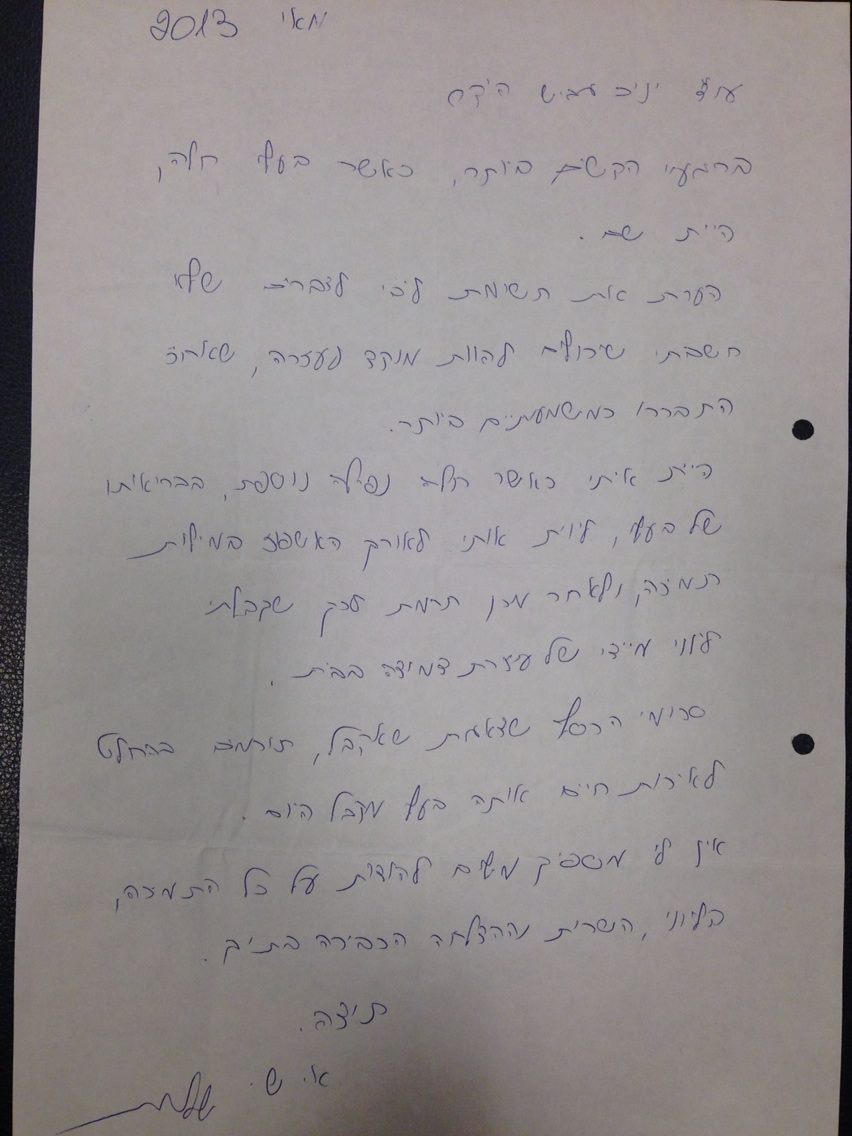 מאי 2013
עו"ד יניב עביש היקר
ברגעיי הקשים ביותר, כאשר בעלי חלה,
היית שם.
הערת את תשומת ליבי לדברים שלא
חשבתי שיכולים להוות מוקד לעזרה, שאח"כ
התבררו כמשמעותיים ביותר.
היית איתי כאשר חלה נפילה נוספת, בבריאותו
של בעלי, ליוית אותי לאורך האשפוז במילות
תמיכה, ולאחר מכן תרמת לכך שקבלתי
ליווי מיידי של עזרת תמיכה בבית.
סכומי הכסף שדאגת שאקבל, תורמים בהחלט
לאיכות חיים אותה בעלי מקבל היום.
אין לי מספיק מילים להודות על כל התמיכה,
הליווי, השרות וההצלחה הכבירה בתיק.
תודה.
א. ש.